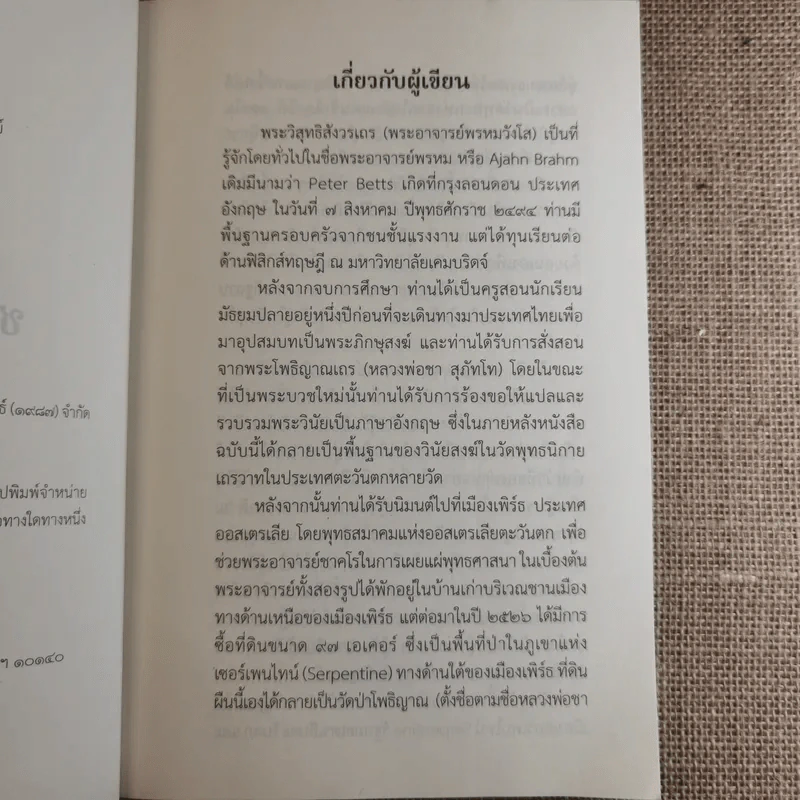 ย์
ช
ธ์ (๑๙๘๗) จำกัด
ปพิมพ์จำหน่าย
ทางใดทางหนึ่ง
ฯ ๑๐๑๔๐
เกี่ยวกับผู้เขียน
พระวิสุทธิสังวรเถร (พระอาจารย์พรหมวังโส) เป็นที่
รู้จักโดยทั่วไปในชื่อพระอาจารย์พรหม หรือ Ajahn Brahm
เดิมมีนามว่า Peter Betts เกิดที่กรุงลอนดอน ประเทศ
อังกฤษ ในวันที่ ๗ สิงหาคม ปีพุทธศักราช ๒๔๙๔ ท่านมี
พื้นฐานครอบครัวจากชนชั้นแรงงาน แต่ได้ทุนเรียนต่อ
ด้านฟิสิกส์ทฤษฎี ณ มหาวิทยาลัยเคมบริดจ์
หลังจากจบการศึกษา ท่านได้เป็นครูสอนนักเรียน
มัธยมปลายอยู่หนึ่งปีก่อนที่จะเดินทางมาประเทศไทยเพื่อ
มาอุปสมบทเป็นพระภิกษุสงฆ์ และท่านได้รับการสั่งสอน
จากพระโพธิญาณเถร (หลวงพ่อชา สุภัทโท) โดยในขณะ
ที่เป็นพระบวชใหม่นั้นท่านได้รับการร้องขอให้แปลและ
รวบรวมพระวินัยเป็นภาษาอังกฤษ ซึ่งในภายหลังหนังสือ
ฉบับนี้ได้กลายเป็นพื้นฐานของวินัยสงฆ์ในวัดพุทธนิกาย
เถรวาทในประเทศตะวันตกหลายวัด
หลังจากนั้นท่านได้รับนิมนต์ไปที่เมืองเพิร์ธ ประเทศ
ออสเตรเลีย โดยพุทธสมาคมแห่งออสเตรเลียตะวันตก เพื่อ
ช่วยพระอาจารย์ชาคโรในการเผยแผ่พุทธศาสนา ในเบื้องต้น
พระอาจารย์ทั้งสองรูปได้พักอยู่ในบ้านเก่าบริเวณชานเมือง
ทางด้านเหนือของเมืองเพิร์ธ แต่ต่อมาในปี ๒๕๒๖ ได้มีการ
ซื้อที่ดินขนาด ๙๗ เอเคอร์ ซึ่งเป็นพื้นที่ป่าในภูเขาแห่ง
เซอร์เพนไทน์ (Serpentine) ทางด้านใต้ของเมืองเพิร์ธ ที่ดิน
ผืนนี้เองได้กลายเป็นวัดป่าโพธิญาณ (ตั้งชื่อตามชื่อหลวงพ่อชา